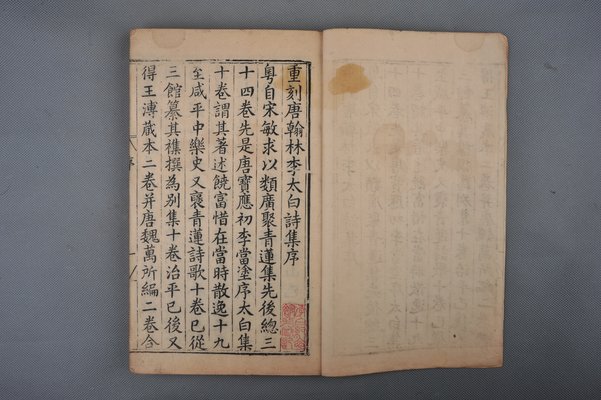 重刻唐翰林李太白詩集序
粵自宋敏求以類廣聚青蓮集先後總三
十四卷先是唐寶應初李當塗序太白集
十卷謂其著述饒富惜在當時散逸十九
至咸平中樂史又裒青蓮詩歌十卷已從
三館纂其襍撰為別集十卷治平已後又
得王溥蔵本二卷并唐魏萬所編二卷合
序